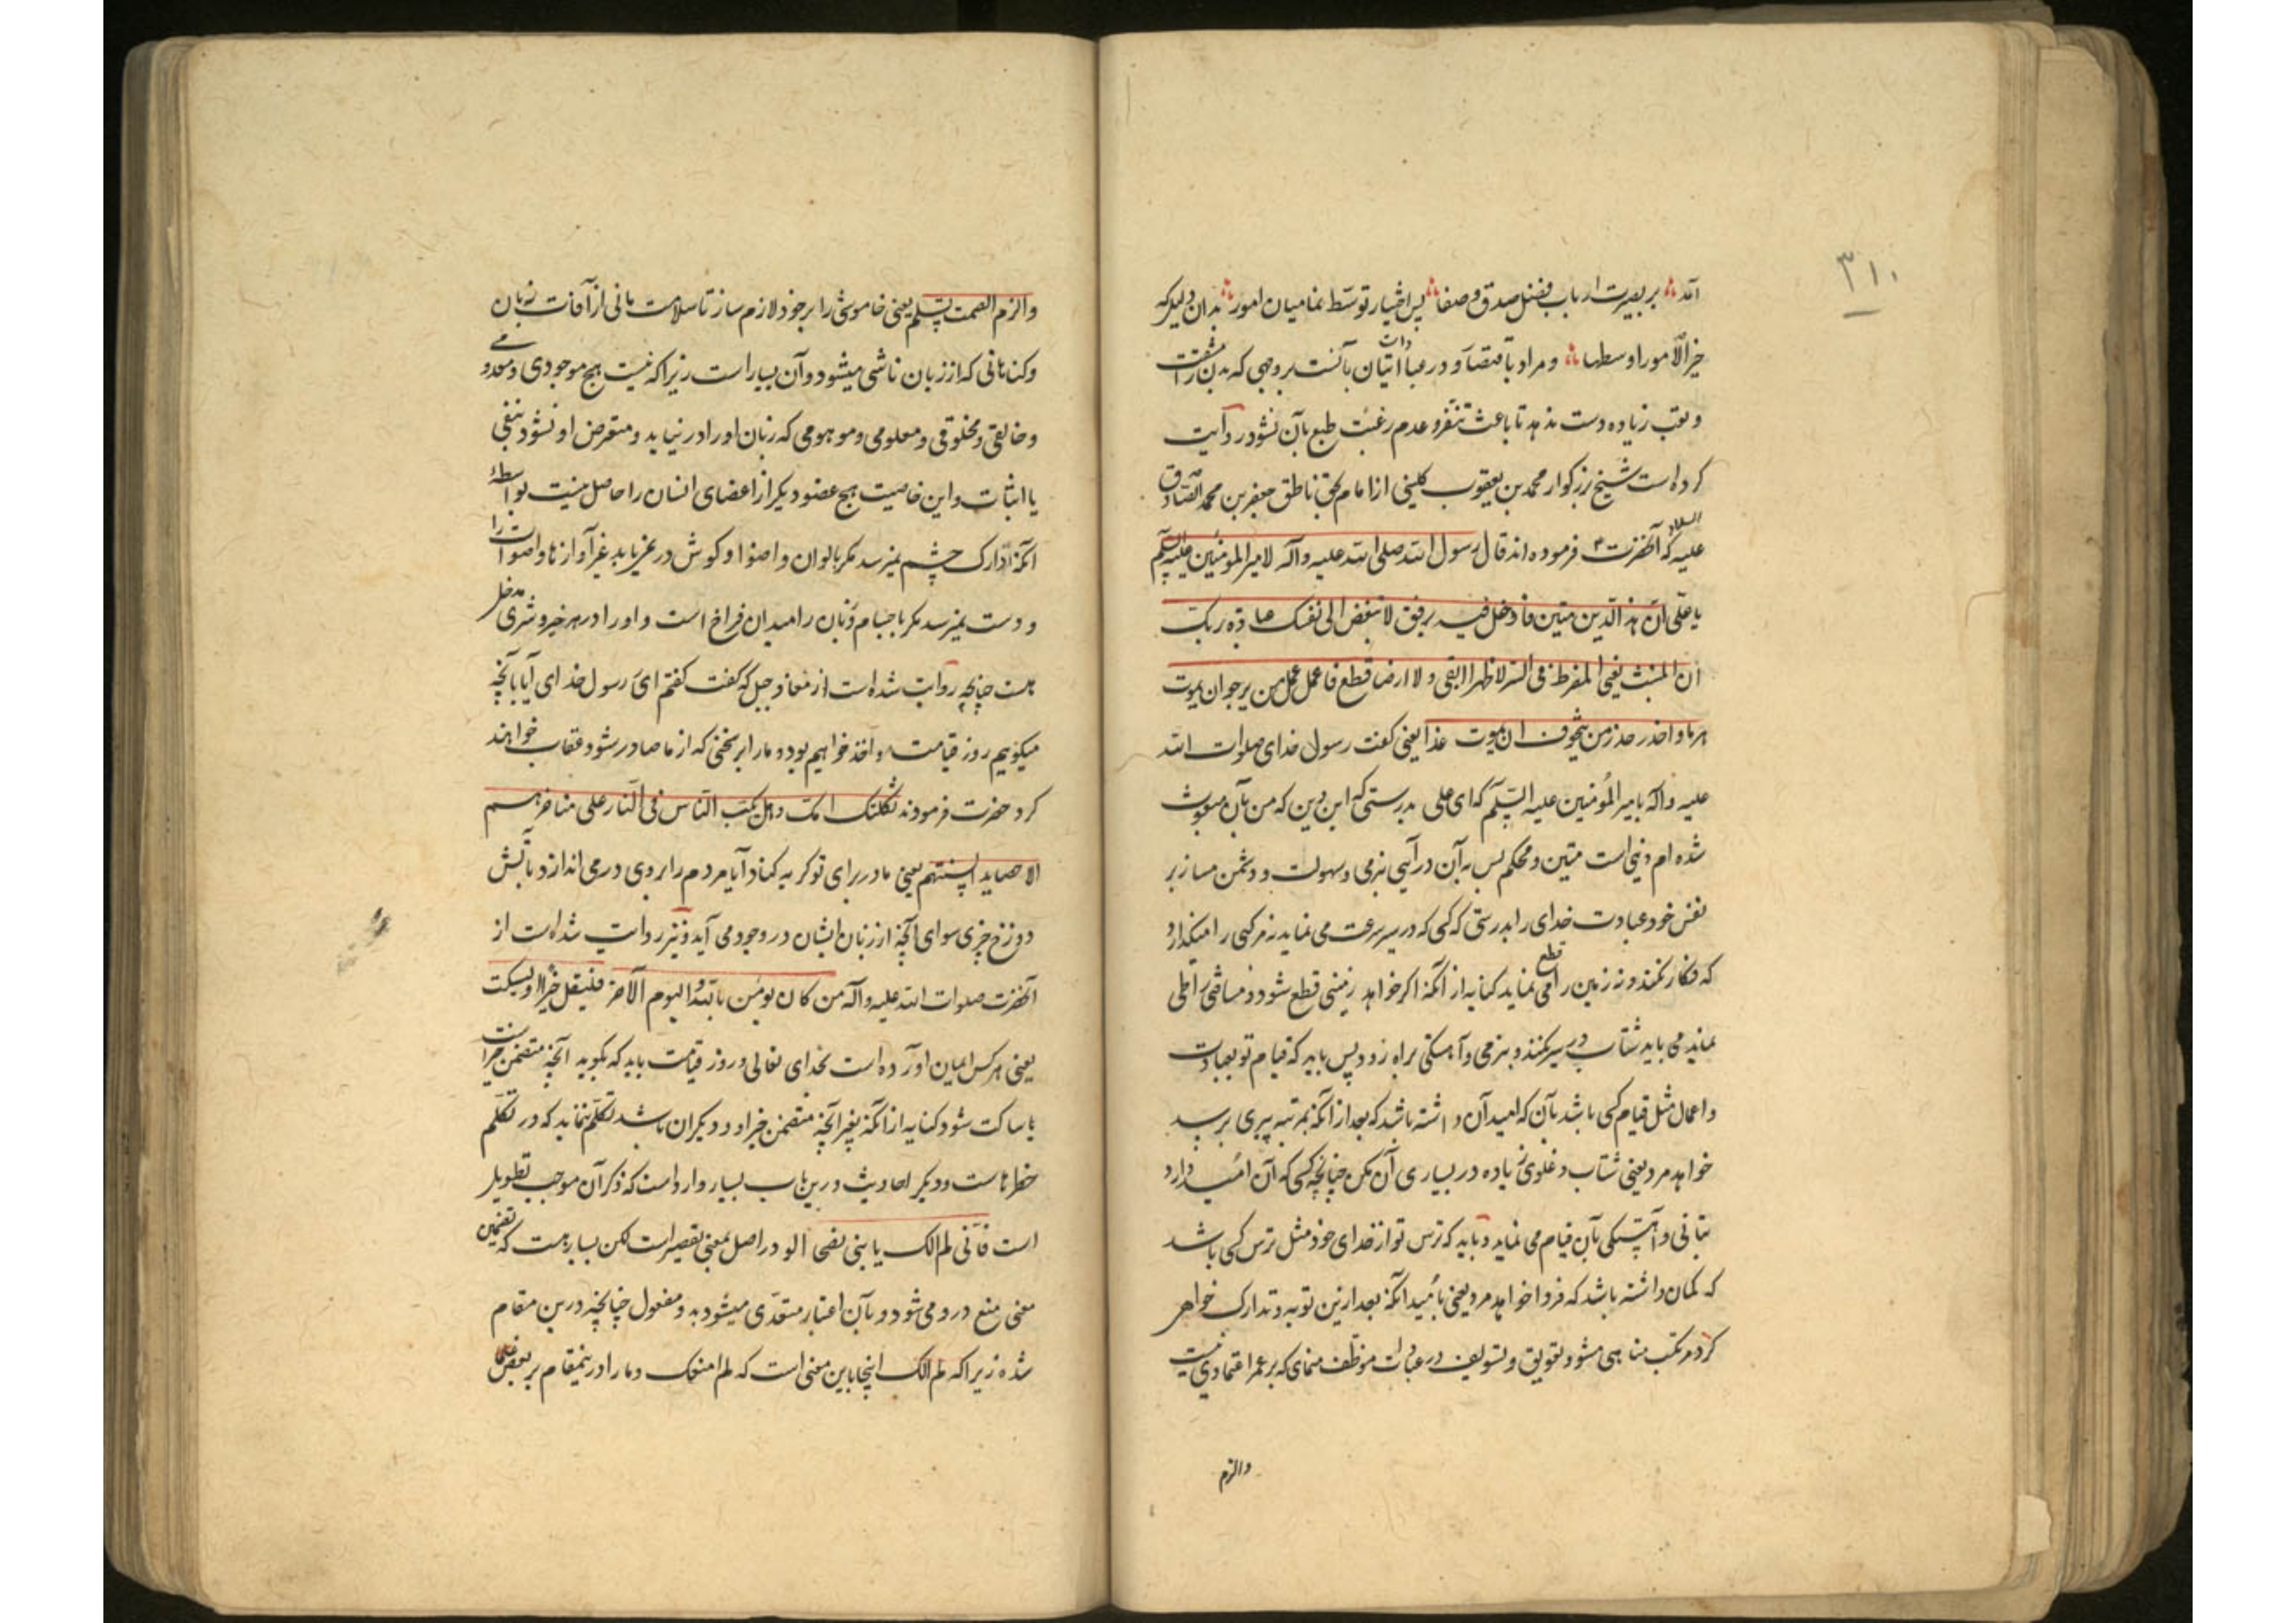 ۳۱۰
آمد بر بصیرت ارباب فضل صدق و صفا پس اختیار توسط نما میان امور بدان دلیل که
خیر الامور اوسطها و مراد باقتصاد در عبادات اتیان بآنست بر وجهی که بدن را مشقت
و تعب زیاده دست ندهد تا باعث تنفر و عدم رغبت طبع بآن نشود روایت
کرده است شیخ بزرکوار محمد بن یعقوب کلینی از امام بحق ناطق جعفر بن محمد الصادق
علیه السلام که آنحضرت فرموده اند قال رسول الله صلی الله علیه وآله لامیر المومنین علیه السلم
یا علی ان هذا الدین متین فاوغل فیه برفق لا تبغض الی نفسک عبادة ربک
ان المنبت یعنی المفرط فی السیر لا ظهرا ابقی و لا ارضا قطع فاعمل عمل من یرجوان یموت
هرما و احذر حذر من یتخوف ان یموت غدا یعنی کفت رسول خدای صلوات الله
علیه وآله بامیر المؤمنین علیه السلم که ای علی بدرستی که این دین که من بآن مبعوث
شده ام دینی است متین و محکم پس به آن در آیی بنرمی و سهولت و دشمن مساز بر
نفس خود عبادت خدای را بدرستی که کسی که در سیر سرعت می نماید نه مرکبی را میکذارد
که فکار نکند و نه زمین را قطع می نماید کنایه از آنکه اکر خواهد زمینی قطع شود و مسافتی را طی
نماید می باید شتاب در سیر نکند و بنرمی و آهستکی براه رود پس باید که قیام تو بعبادت
و اعمال مثل قیام کسی باشد بآن که امید آن داشته باشد که بعد از آنکه بمرتبه پیری برسد
خواهد مرد یعنی شتاب و غلوی زیاده در بسیاری آن مکن چنانچه کسی که آن امید دارد
بتانی و آهستکی بآن قیام می نماید و باید که ترس تو از خدای خود مثل ترس کسی باشد
که کمان داشته باشد که فردا خواهد مرد یعنی بامید آنکه بعد ازین توبه و تدارک خواهی
کرد مرتکب مناهی مشو و تعویق و تسویف در عبادات موظف منمای که بر عمر اعتمادی نیست
والزم
والزم الصمت تسلم یعنی خاموشی را بر خود لازم ساز تا سلامت مانی از آفات زبان
و کناهانی که از زبان ناشی میشود و آن بسیار است زیرا که نیست هیچ موجودی و معدومی
و خالقی و مخلوقی و معلومی و موهومی که زبان او را در نیابد و متعرض او نشود بنفی
یا اثبات و این خاصیت هیچ عضو دیکر از اعضای انسان را حاصل نیست بواسطهٔ
آنکه ادارک چشم نمیرسد مکر بالوان و اضوا و کوش در نمی یابد غیر آوازها و اصوات را
و دست نمیرسد مکر باجسام و زبان را میدان فراخ است و او را در هر خیر و شری مدخل
هست چنانچه روایت شده است از معاذ جبل که کفت کفتم ای رسول خدای آیا بآنچه
میکوییم روز قیامت مواخذ خواهیم بود و ما را بر سخنی که از ما صادر شود عقاب خواهند
کرد حضرت فرمودند ثکلتک امک وهل یکب الناس فی النار علی مناخرهم
الا حصاید السنتهم یعنی مادر برای تو کریه کناد آیا مردم را بر وی در می اندازد بآتش
دوزخ چیزی سوای آنچه از زبان ایشان در وجود می آید و نیز روایت شده است از
آنحضرت صلوات الله علیه وآله من کان یومن بالله والیوم الآخر فلیقل خیرا او لیسکت
یعنی هر کس ایمان آورده است بخدای تعالی و روز قیامت باید که بکوید آنچه متضمن خیر است
یا ساکت شود کنایه از آنکه بغیر آنچه متضمن خیر او و دیکران باشد تکلم ننماید که در تکلم
خطرهاست و دیکر احادیث درین باب بسیار وارد است که ذکر آن موجب تطویل
است فانی لم آلک یا بنی نصحا الو در اصل بمعنی تقصیر است لکن بسیار هست که تضمین
معنی منع درو می شود و بآن اعتبار متعدی میشود به دو مفعول چنانچه درین مقام
شده زیرا که لم آلک اینجا باین معنی است که لم امنعک و ما را درینمقام بر بعضی